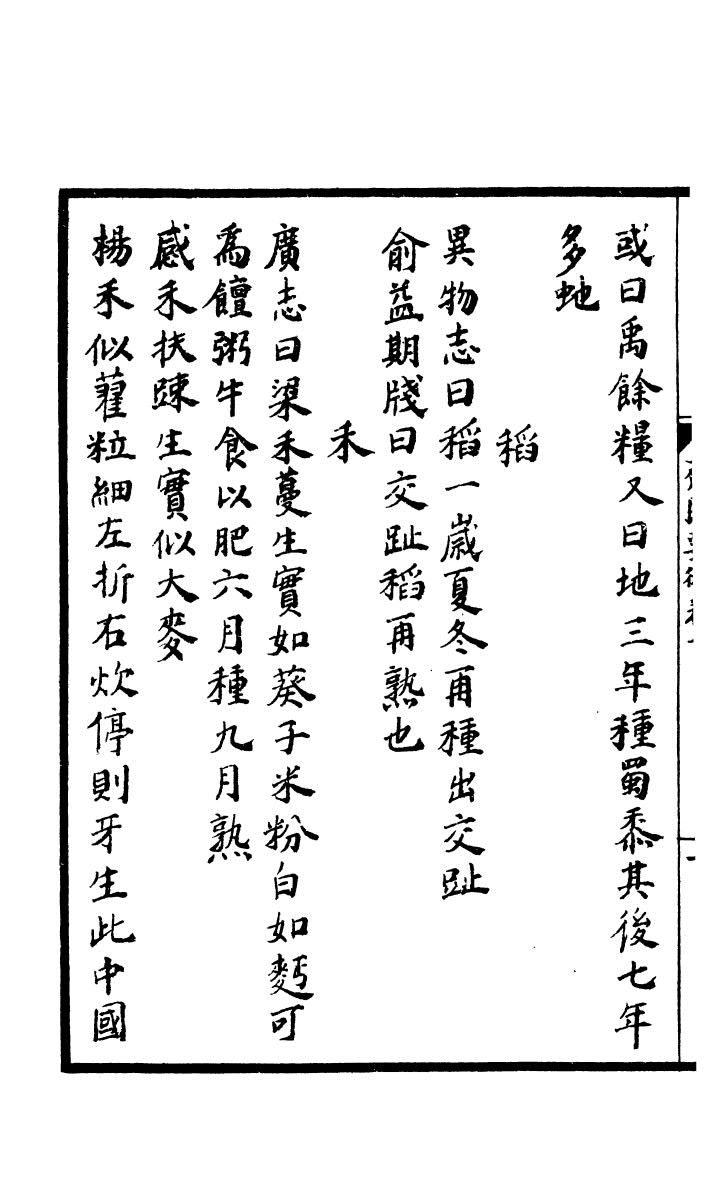 或曰禹餘糧又曰地三年種蜀黍其後七年
多虵
稻
異物志曰稻一歲夏冬再種出交趾
俞益期牋曰交趾稻再熟也
禾
廣志曰梁禾蔓生實如葵子米粉白如麪可
為饘粥牛食以肥六月種九月熟
感禾扶踈生實似大麥
楊禾似藋粒細左折右炊停則牙生此中國